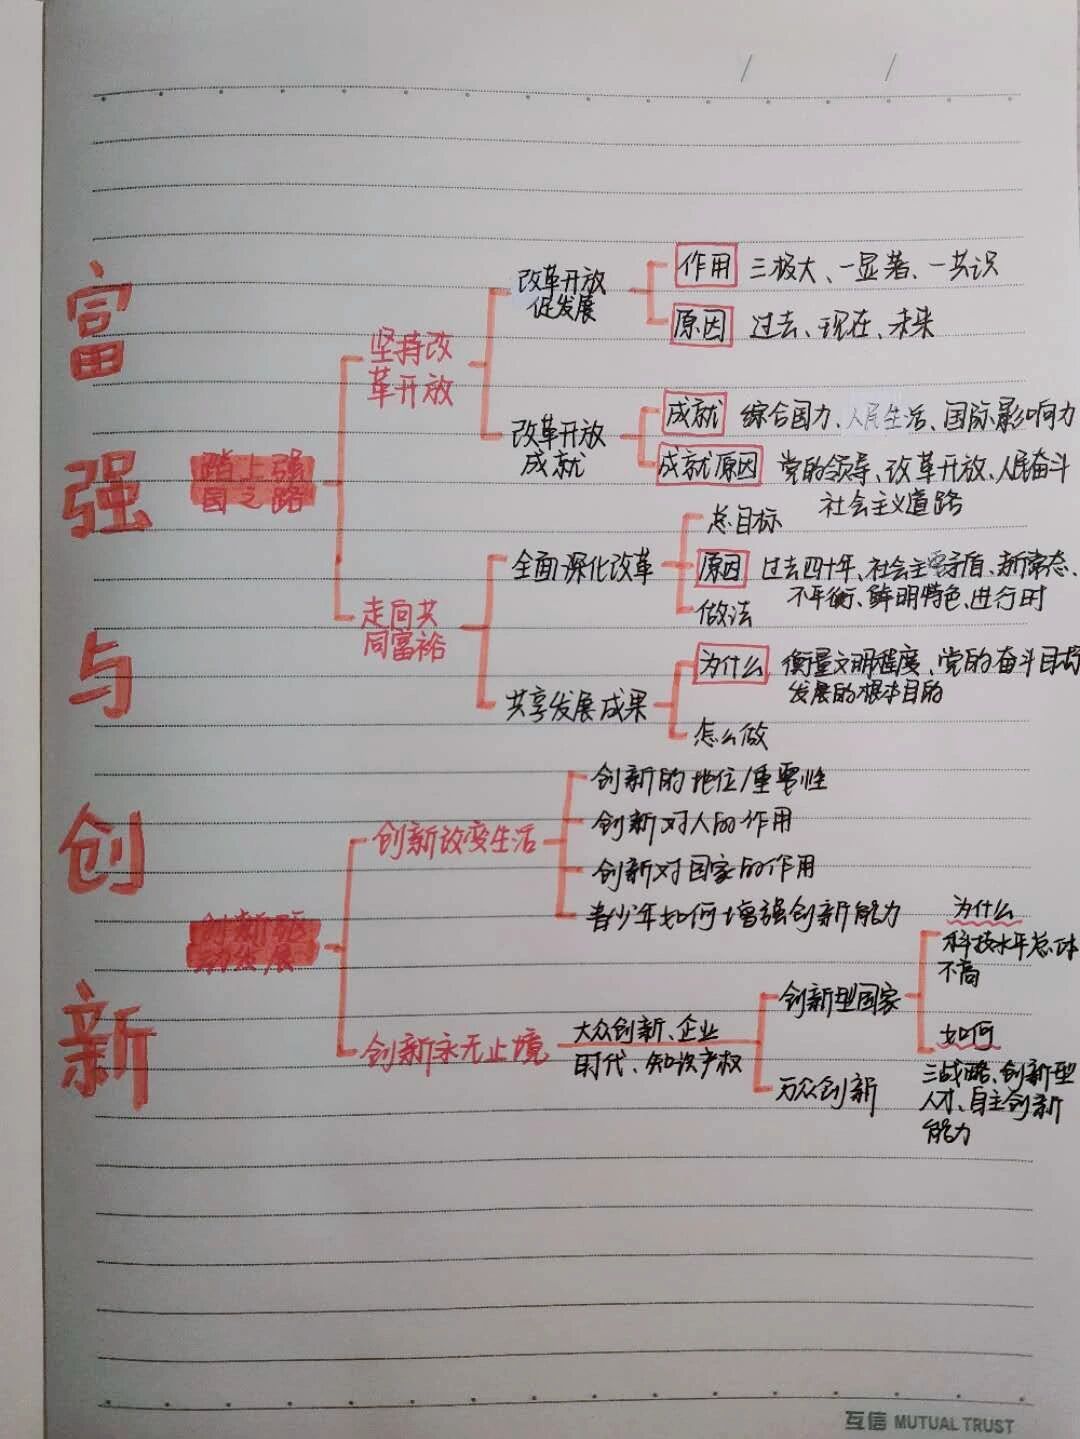 富
强
与
创
新
踏上强
国之路
坚持改
革开放
改革开放
促发展
作用 三极大、一显著、一共识
原因 过去、现在、未来
改革开放
成就
成就 综合国力、人民生活、国际影响力
成就原因 党的领导、改革开放、人民奋斗
社会主义道路
走向共
同富裕
全面深化改革
总目标
原因 过去四十年、社会主要矛盾、新常态、
不平衡、鲜明特色、进行时
做法
共享发展成果
为什么 衡量文明程度、党的奋斗目标
发展的根本目的
怎么做
创新驱
动发展
创新改变生活
创新的地位/重要性
创新对人的作用
创新对国家的作用
青少年如何增强创新能力
创新永无止境
大众创新、企业
时代、知识产权
创新型国家
为什么
科技水平总体
不高
如何
三战略、创新型
人才、自主创新
能力
万众创新
互信 MUTUAL TRUST